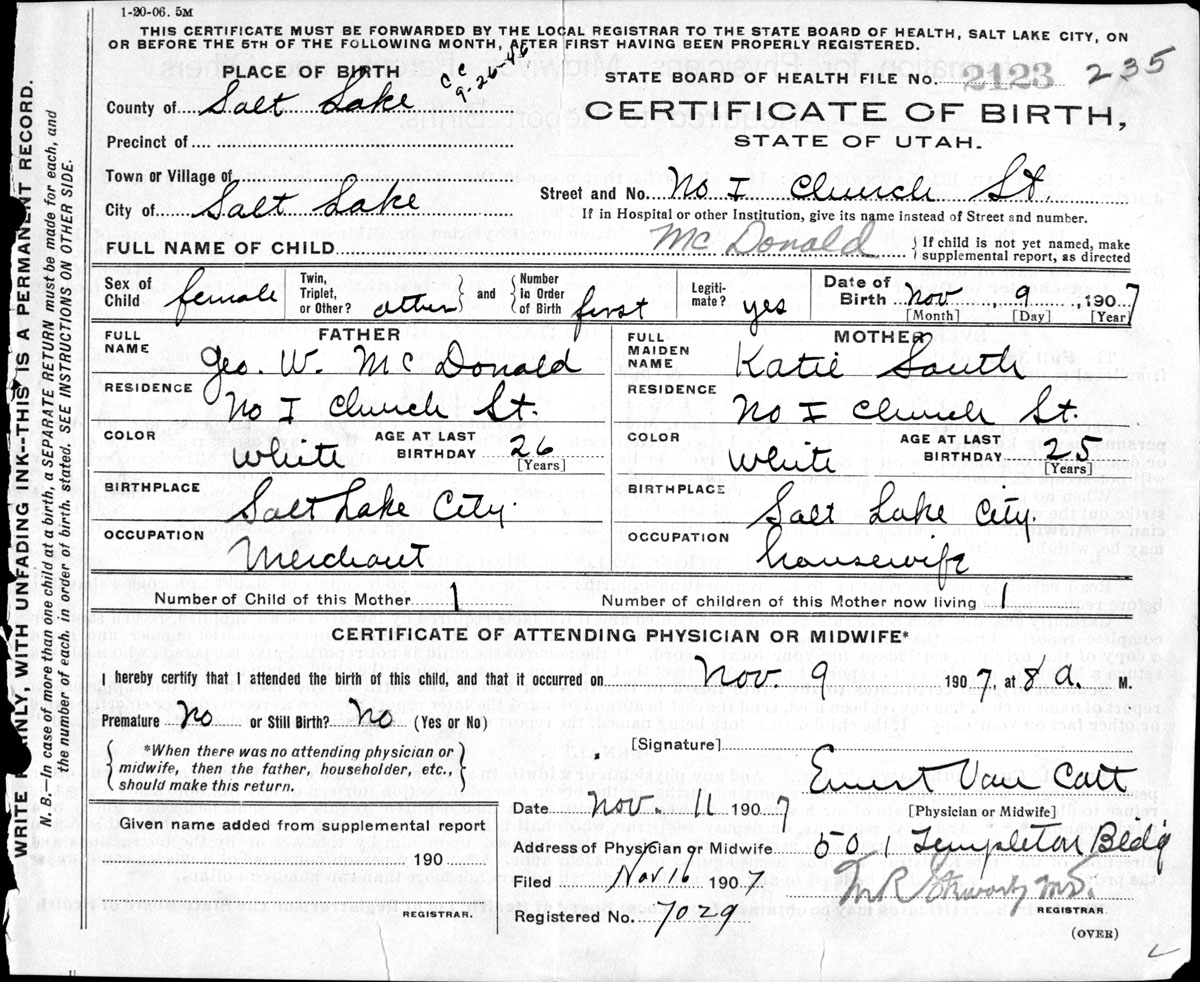 1-20-06. 5M
THIS CERTIFICATE MUST BE FORWARDED BY THE LOCAL REGISTRAR TO THE STATE BOARD OF HEALTH, SALT LAKE CITY, ON
OR BEFORE THE 5TH OF THE FOLLOWING MONTH, AFTER FIRST HAVING BEEN PROPERLY REGISTERED.
PLACE OF BIRTH
CC
9-26-46
STATE BOARD OF HEALTH FILE No. 2123 235
County of Salt Lake
CERTIFICATE OF BIRTH,
Precinct of
STATE OF UTAH.
Town or Village of
City of Salt Lake
Street and No. No I Church St.
If in Hospital or other Institution, give its name instead of Street and number.
FULL NAME OF CHILD McDonald
If child is not yet named, make
supplemental report, as directed
Sex of Child female
Twin, Triplet, or Other? other and Number In Order of Birth first
Legiti-mate? yes
Date of Birth Nov 9, 1907
[Month] [Day] [Year]
FATHER
FULL NAME Geo. W. McDonald
RESIDENCE No I Church St.
COLOR White AGE AT LAST BIRTHDAY 26
[Years]
BIRTHPLACE Salt Lake City.
OCCUPATION Merchant
MOTHER
FULL MAIDEN NAME Katie South
RESIDENCE No I Church St.
COLOR White AGE AT LAST BIRTHDAY 25
[Years]
BIRTHPLACE Salt Lake City.
OCCUPATION housewife
Number of Child of this Mother 1
Number of children of this Mother now living 1
CERTIFICATE OF ATTENDING PHYSICIAN OR MIDWIFE*
I hereby certify that I attended the birth of this child, and that it occurred on Nov. 9 1907, at 8 a. M.
Premature No or Still Birth? No (Yes or No)
*When there was no attending physician or
midwife, then the father, householder, etc.,
should make this return.
[Signature]
[Physician or Midwife]
Date Nov. 11 1907
Address of Physician or Midwife 501 Templeton Bldg
Given name added from supplemental report
190
REGISTRAR.
Filed Nov 16 1907
Registered No. 7029
REGISTRAR.
(OVER)
WRITE PLAINLY, WITH UNFADING INK--THIS IS A PERMANENT RECORD.
N. B.—In case of more than one child at a birth, a SEPARATE RETURN must be made for each, and
the number of each, in order of birth, stated. SEE INSTRUCTIONS ON OTHER SIDE.